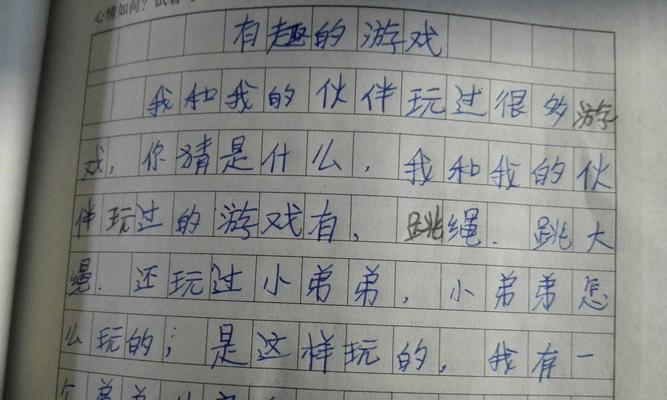 心情如何？试着
有趣的游戏
我和我的伙伴玩过很多游
戏，你猜是什么，我和我的伙
伴玩过的游戏有，跳绳．跳大
绳．还玩过小弟弟，小弟弟怎
么玩的；是这样玩的，我有一
个弟弟